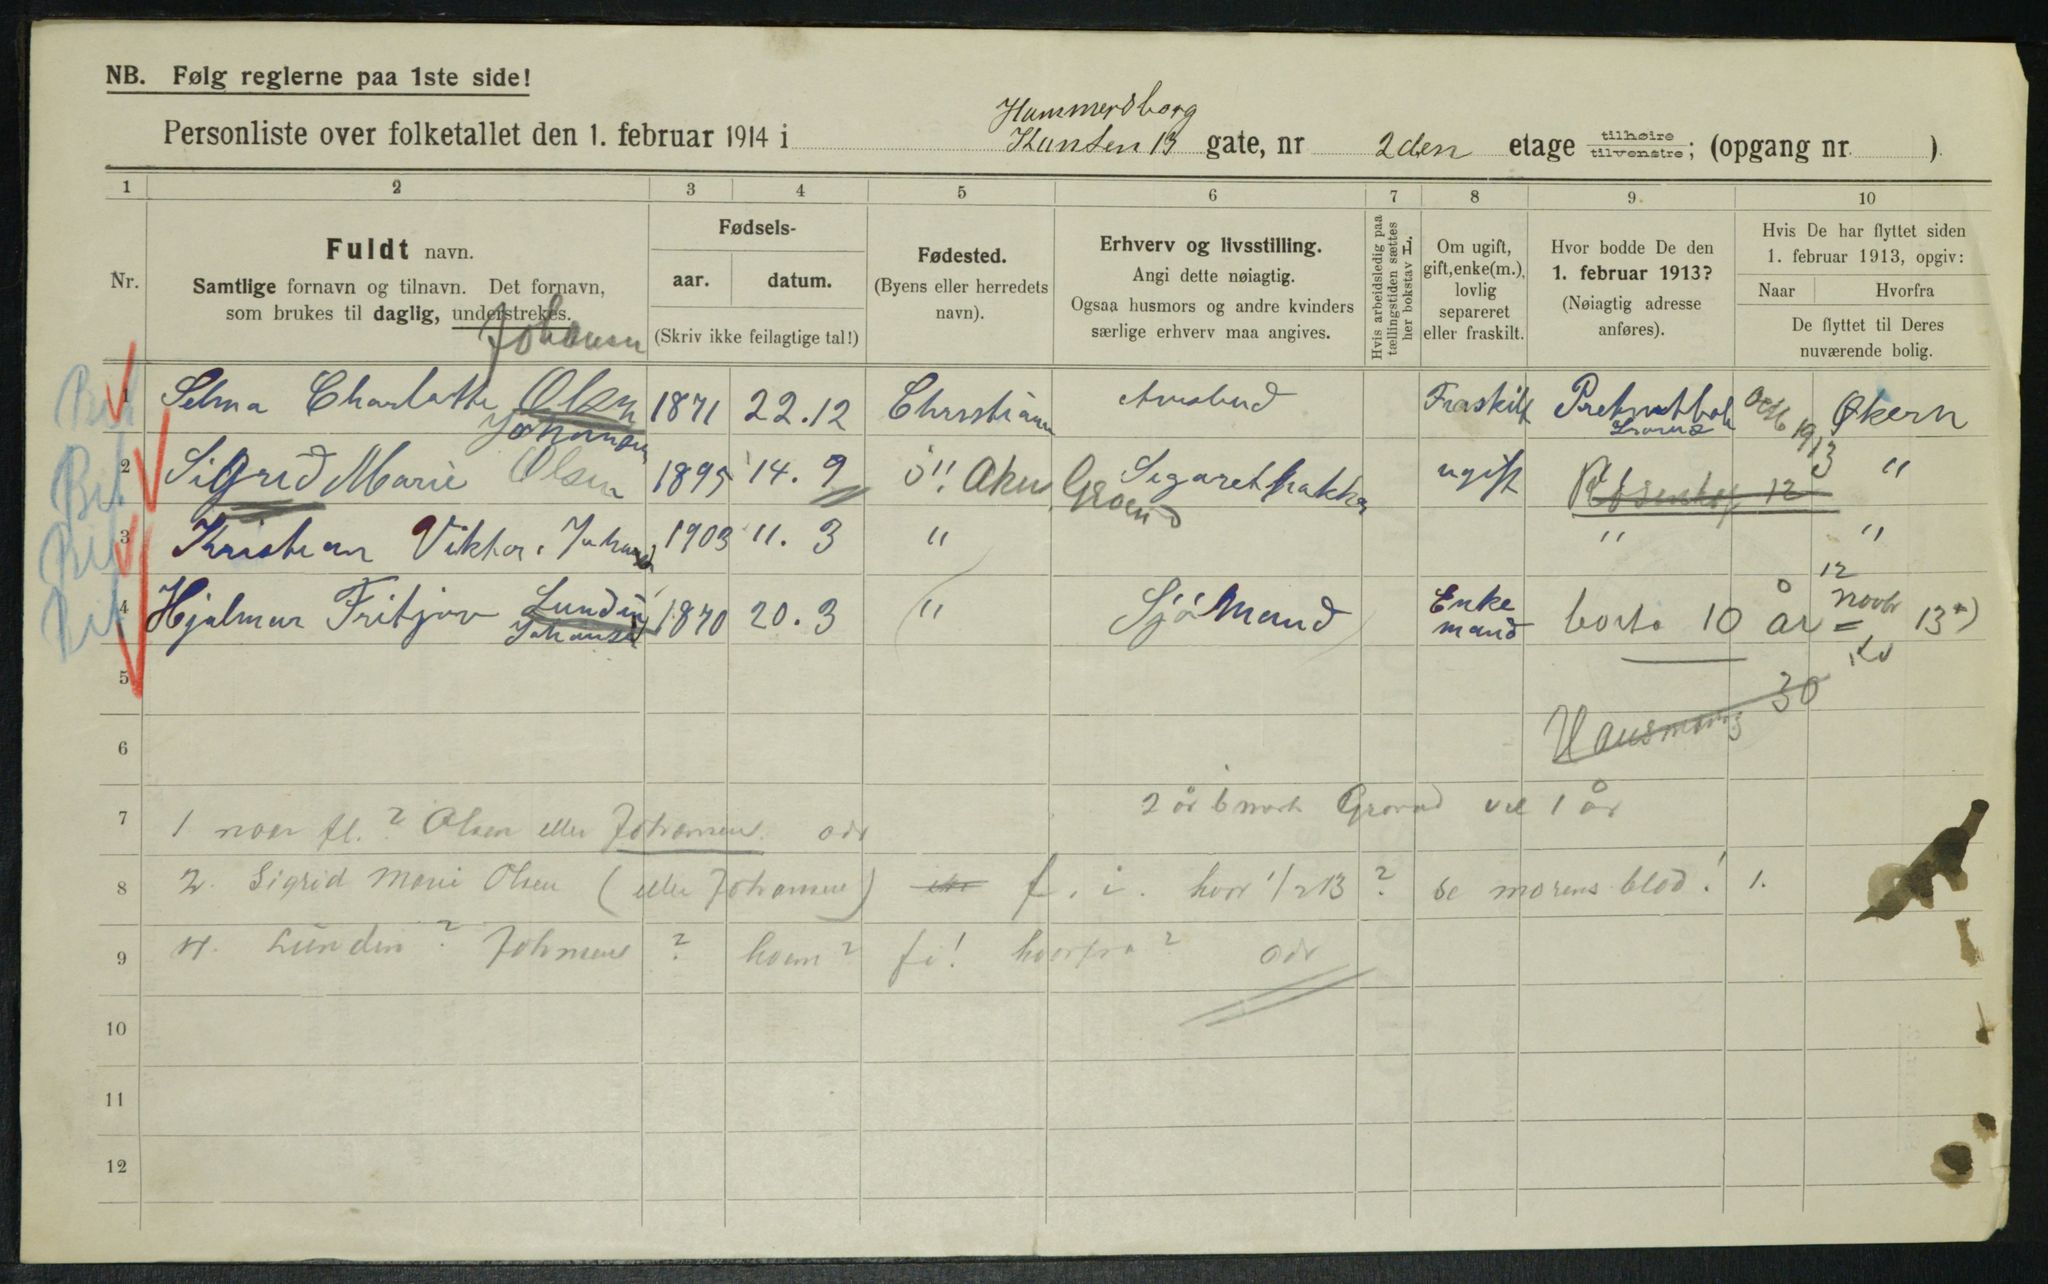 NB. Følg reglerne paa 1ste side!
Hammersborg
Personliste over folketallet den 1. februar 1914 i Kanten 13 gate, nr 2den etage tilhøire tilvenstre; (opgang nr. ).
1 2 3 4 5 6 7 8 9 10
Nr.
Fuldt navn.
Samtlige fornavn og tilnavn. Det fornavn,
som brukes til daglig, understrekes.
Fødsels-
aar. datum.
(Skriv ikke feilagtige tal!)
Fødested.
(Byens eller herredets
navn).
Erhverv og livsstilling.
Angi dette nøiagtig.
Ogsaa husmors og andre kvinders
særlige erhverv maa angives.
Hvis arbeidsledig paa
tællingstiden sættes
her bokstav L.
Om ugift,
gift, enke(m.),
lovlig
separeret
eller fraskilt.
Hvor bodde De den
1. februar 1913?
(Nøiagtig adresse
anføres).
Hvis De har flyttet siden
1. februar 1913, opgiv:
Naar Hvorfra
De flyttet til Deres
nuværende bolig.
Johansen
1 Selma Charlotte Olsen 1871 22.12 Christiania Avisbud Fraskilt 1913 Økern
Johansen
2 Sigrid Marie Olsen 1895 14.9 Aker Grorud ugift 12 "
3 Kristian Viktor Johansen 1903 11.3 " " "
4 Hjalmar Fritjov Lundin 1870 20.3 " Sjømand Enke borte 10 år 12 novbr 13
Johansen mand
5
30
6 Hausmansg
2 år Grorud 1 år
7 1 navn fl.? Olsen eller Johansen odr
8 2. Sigrid Marie Olsen (eller Johansen) f. i. hvor 1/2 13? se morens blad! 1.
9 4. Lundin? Johansen? hvem? fi! hvorfra? odr
10
11
12